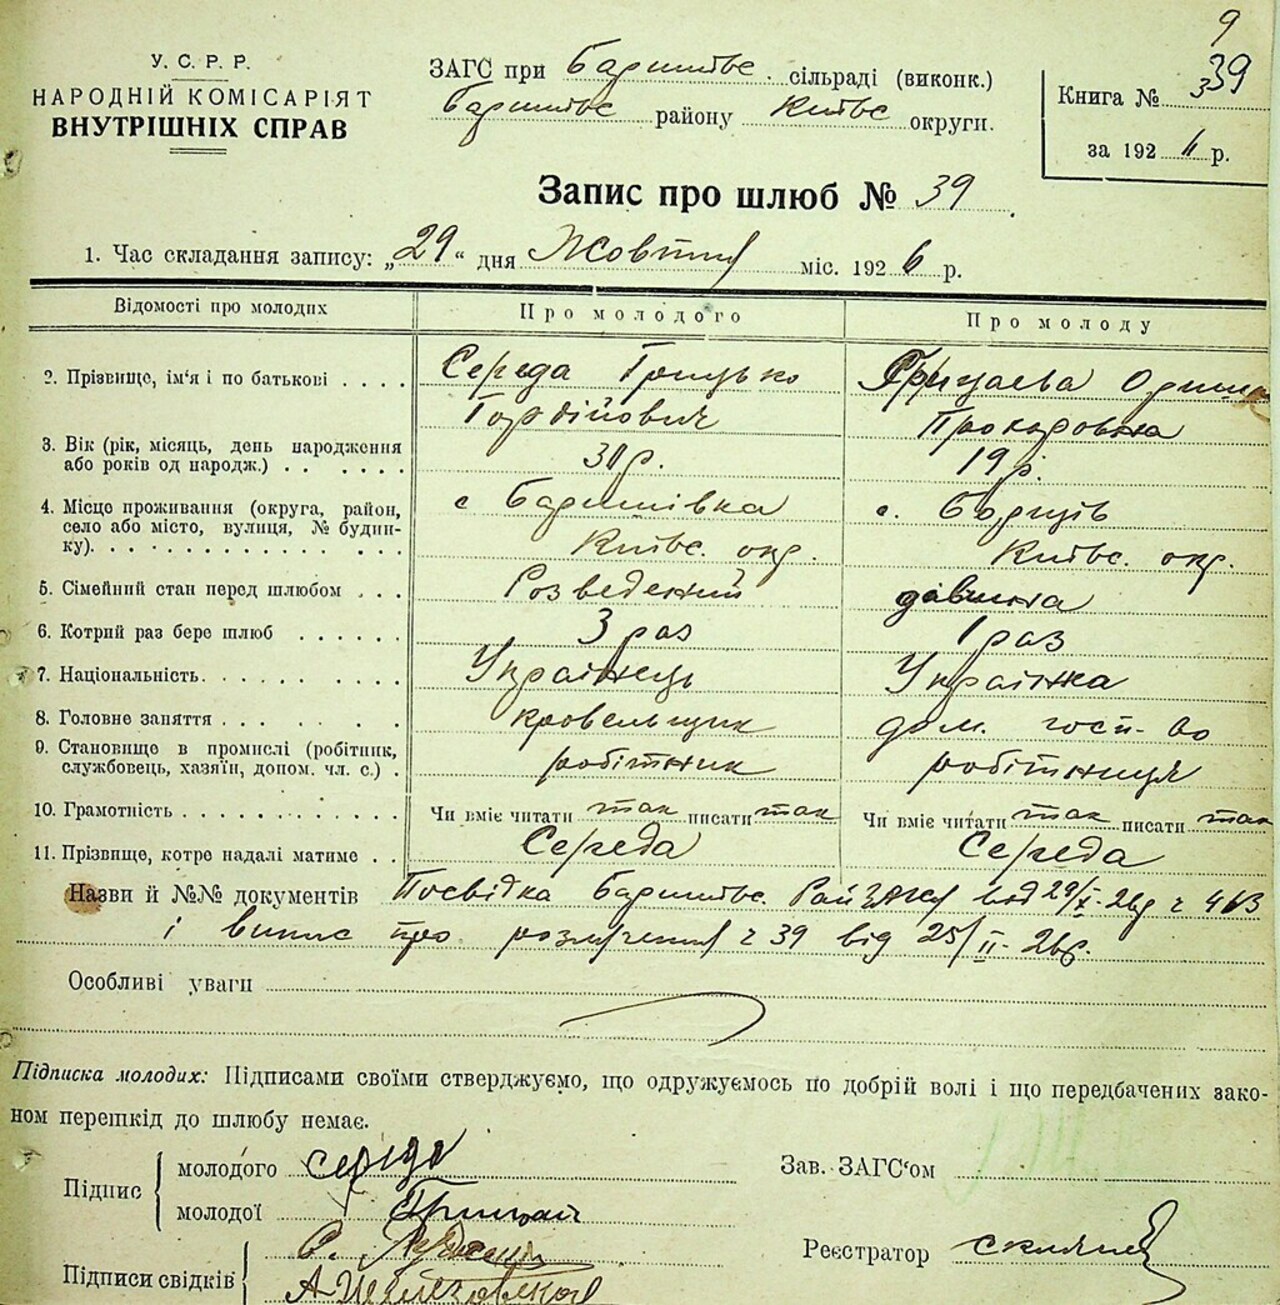 9
У. С. Р. Р.
НАРОДНІЙ КОМІСАРІЯТ
ВНУТРІШНІХ СПРАВ
ЗАГС при Баришівс. сільраді (виконк.)
Баришівс району Київс округи.
Книга № 39
за 192 р.
Запис про шлюб № 39
1. Час складання запису: „29“ дня Жовтня міс. 1926 р.
Відомості про молодих
Про молодого
Про молоду
2. Прізвище, ім‘я і по батькові . . . .
Середа Грицько
Гордійович
Орина
3. Вік (рік, місяць, день народження
або років од народж.) . . . . . .
31 р.
19 р.
4. Місце проживання (округа, район,
село або місто, вулиця, № будин-
ку). . . . . . . . . . . . . . .
с Баришівка
Київс. окр.
с. Борщів
Київс. окр.
5. Сімейний стан перед шлюбом . . .
Розведений
дівчина
6. Котрий раз бере шлюб . . . . . .
3 раз
1 раз
7. Національність. . . . . . . . .
Українець
Українка
8. Головне заняття . . . . . . .
кровельщик
дом. госп-во
9. Становище в промислі (робітник,
службовець, хазяїн, допом. чл. с.) .
робітник
робітниця
10. Грамотність . . . . . . . . . . . .
Чи вміє читати так писати так
Чи вміє читати так писати так
11. Прізвище, котре надалі матиме . .
Середа
Середа
Назви й №№ документів Посвідка Баришівс. Рай ЗАГСу від 29/X-26р ч
і випис про розлучення ч 39 від 25/II-26р.
Особливі уваги
Підписка молодих: Підписами своїми стверджуємо, що одружуємось по добрій волі і що передбачених зако-
ном перешкід до шлюбу немає.
Підпис
молодого Середа
молодої Грицай
Зав. ЗАГС‘ом
Реєстратор
Підписи свідків